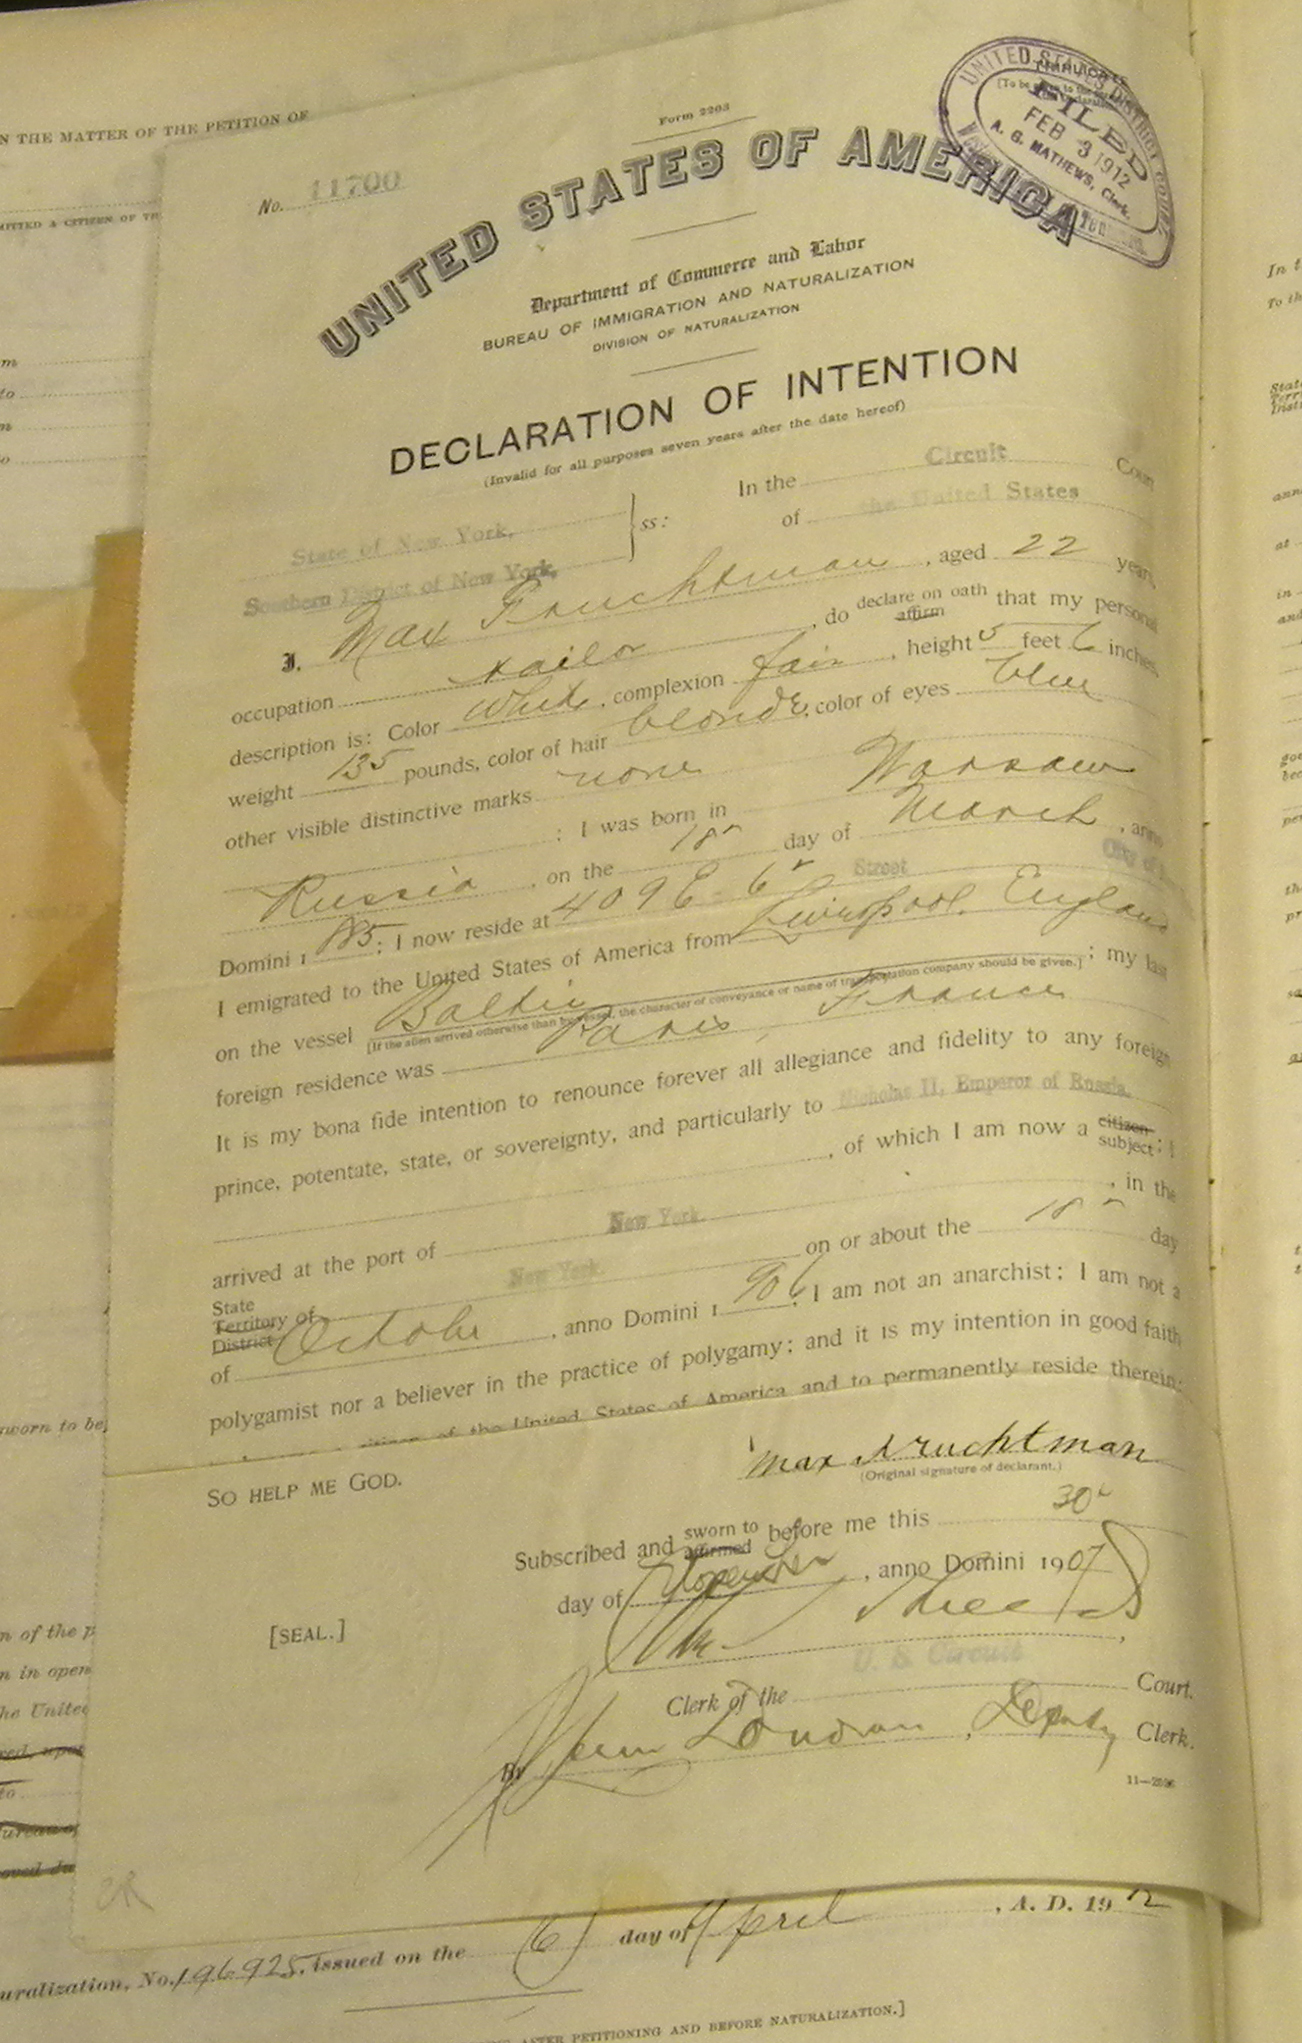 N THE MATTER OF THE PETITION OF
MITTED A CITIZEN OF TH
Form 2203
No. 11700
UNITED STATES OF AMERICA
UNITED STATES DISTRICT COURT
FILED
FEB 3 1912
A. G. MATHEWS, Clerk.
Department of Commerce and Labor
BUREAU OF IMMIGRATION AND NATURALIZATION
DIVISION OF NATURALIZATION
DECLARATION OF INTENTION
(Invalid for all purposes seven years after the date hereof)
State of New York,
Southern District of New York,
ss:
In the Circuit Court
of the United States
I, Max Fruchtman, aged 22 years,
occupation tailor, do declare on oath affirm that my personal
description is: Color white, complexion fair, height 5 feet 6 inches,
weight 135 pounds, color of hair blonde, color of eyes blue
other visible distinctive marks none
: I was born in Warsaw
Russia, on the 15 day of March, anno
Domini 1 885; I now reside at 409 E 6 Street City of
I emigrated to the United States of America from Liverpool, England
on the vessel Baltic; my last
[If the alien arrived otherwise than by vessel, the character of conveyance or name of transportation company should be given.]
foreign residence was Paris, France
It is my bona fide intention to renounce forever all allegiance and fidelity to any foreign
prince, potentate, state, or sovereignty, and particularly to Nicholas II, Emperor of Russia,
, of which I am now a citizen subject; I
arrived at the port of New York, in the
State Territory District of New York on or about the 18 day
of October, anno Domini 1 906; I am not an anarchist; I am not a
polygamist nor a believer in the practice of polygamy; and it is my intention in good faith
citizen of the United States of America and to permanently reside therein:
SO HELP ME GOD.
Max Fruchtman
(Original signature of declarant.)
Subscribed and sworn to affirmed before me this 30
day of November, anno Domini 1907
[SEAL.]
Clerk of the U. S. Circuit Court.
By Deputy Clerk.
worn to be
n of the p
n in open
he United
to
, A. D. 19 12
uralization, No. 196925, issued on the (6) day of April
AFTER PETITIONING AND BEFORE NATURALIZATION.]